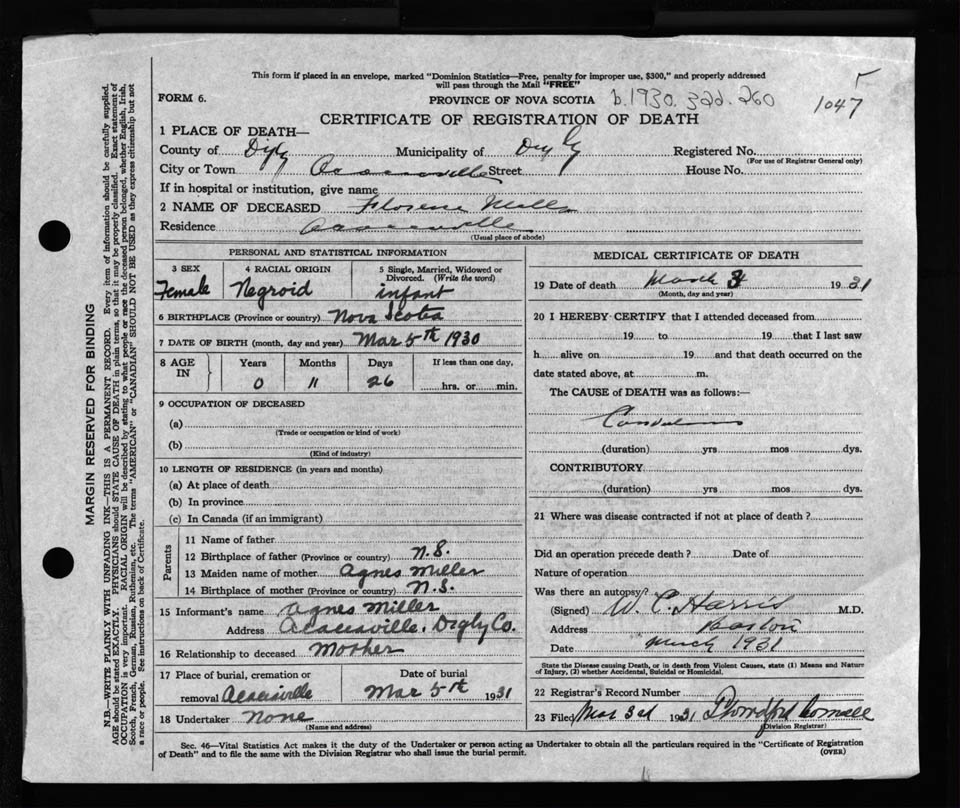 This form if placed in an envelope, marked "Dominion Statistics—Free, penalty for improper use, $300," and properly addressed
will pass through the Mail "FREE"
FORM 6.
PROVINCE OF NOVA SCOTIA b.1930. 322. 260
1047
CERTIFICATE OF REGISTRATION OF DEATH
1 PLACE OF DEATH—
County of Digby Municipality of Digby Registered No.
(For use of Registrar General only)
City or Town Acaciaville Street House No.
If in hospital or institution, give name
2 NAME OF DECEASED
Residence Acaciaville
(Usual place of abode)
PERSONAL AND STATISTICAL INFORMATION
3 SEX 4 RACIAL ORIGIN 5 Single, Married, Widowed or Divorced. (Write the word)
Female Negroid infant
6 BIRTHPLACE (Province or country) Nova Scotia
7 DATE OF BIRTH (month, day and year) Mar 5th 1930
8 AGE IN Years Months Days If less than one day,
0 11 26 hrs. or min.
9 OCCUPATION OF DECEASED
(a)
(Trade or occupation or kind of work)
(b)
(Kind of industry)
10 LENGTH OF RESIDENCE (in years and months)
(a) At place of death
(b) In province
(c) In Canada (if an immigrant)
Parents
11 Name of father
12 Birthplace of father (Province or country) N.S.
13 Maiden name of mother Agnes Miller
14 Birthplace of mother (Province or country) N.S.
15 Informant's name Agnes Miller
Address Acaciaville, Digby Co.
16 Relationship to deceased Mother
17 Place of burial, cremation or Date of burial
removal Acaciaville Mar 5th 1931
18 Undertaker None
(Name and address)
MEDICAL CERTIFICATE OF DEATH
19 Date of death March 1931
(Month, day and year)
20 I HEREBY CERTIFY that I attended deceased from
19 to 19 that I last saw
h alive on 19 and that death occurred on the
date stated above, at m.
The CAUSE of DEATH was as follows:—
(duration) yrs mos dys.
CONTRIBUTORY
(duration) yrs mos dys.
21 Where was disease contracted if not at place of death?
Did an operation precede death? Date of
Nature of operation
Was there an autopsy?
(Signed) W. C. Harris M.D.
Address Barton
Date March 1931
State the Disease causing Death, or in death from Violent Causes, state (1) Means and Nature
of Injury, (2) whether Accidental, Suicidal or Homicidal.
22 Registrar's Record Number
23 Filed Mar 3d 1931
(Division Registrar)
Sec. 46—Vital Statistics Act makes it the duty of the Undertaker or person acting as Undertaker to obtain all the particulars required in the "Certificate of Registration
of Death" and to file the same with the Division Registrar who shall issue the burial permit. (OVER)
MARGIN RESERVED FOR BINDING
N.B.—WRITE PLAINLY WITH UNFADING INK—THIS IS A PERMANENT RECORD. Every item of information should be carefully supplied.
AGE should be stated EXACTLY. PHYSICIANS should STATE CAUSE OF DEATH in plain terms, so that it may be properly classified. Exact statement of
OCCUPATION is very important. RACIAL ORIGIN will be described by stating to what people or race the deceased person belonged, whether English, Irish,
Scotch, French, German, Russian, Ruthenian, etc. The terms "AMERICAN" or "CANADIAN" SHOULD NOT BE USED as they express citizenship but not
a race or people. See instructions on back of Certificate.